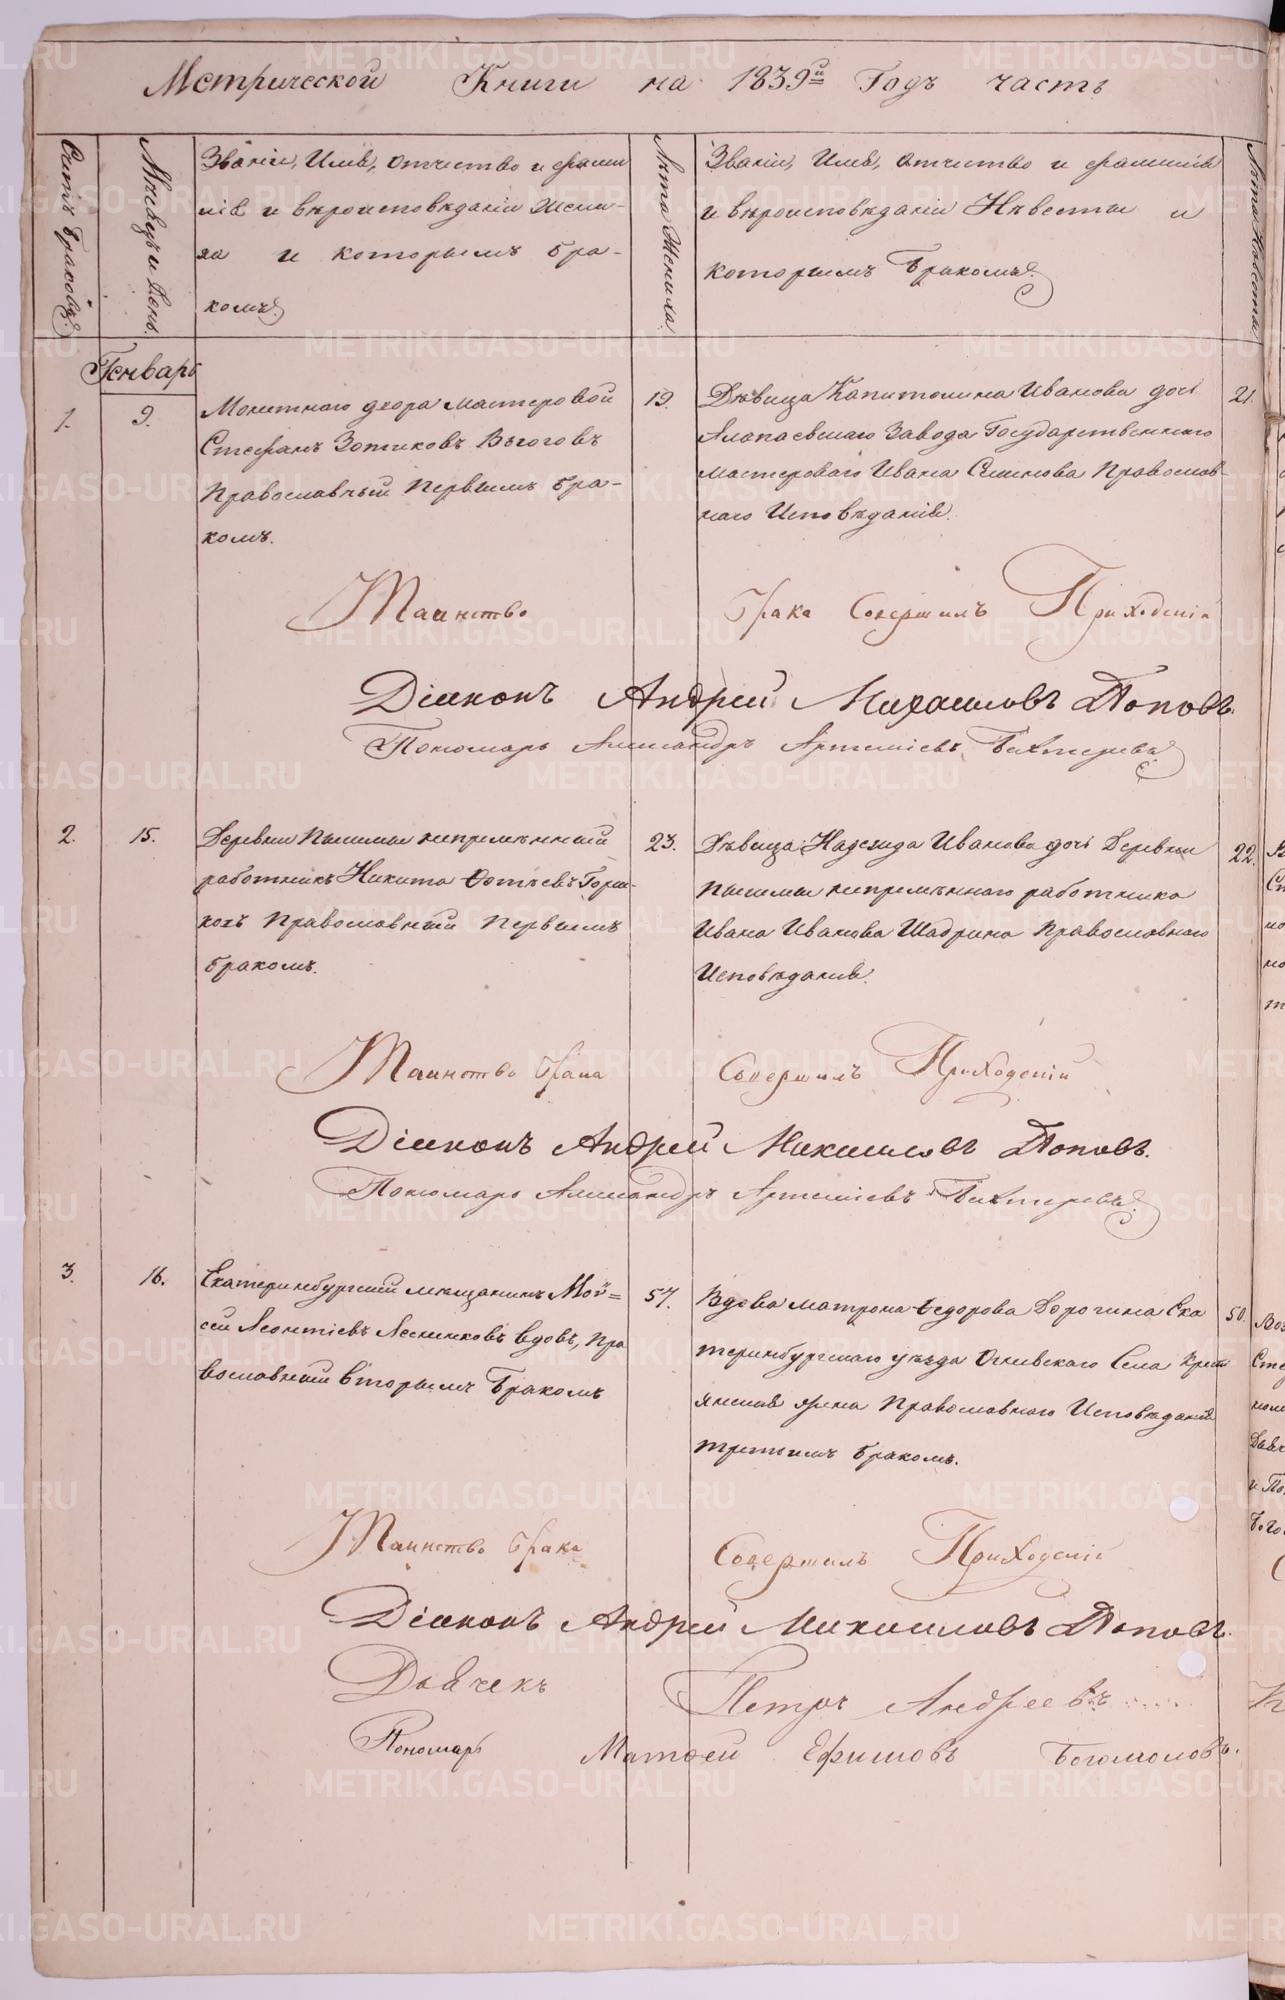 Метрической Книги на 1839й Годъ часть
Счетъ браковъ.
Мѣсяцъ и День.
Званіе, Имя, отчество и фами
лія и вѣроисповѣданіе жени-
ха и которымъ бра-
комъ.
Лѣта Жениха.
Званіе, Имя, отчество и фамилія
и вѣроисповѣданіе Невѣсты и
которымъ бракомъ.
Лѣта Невѣсты
Генварь
1. 9.
Монетнаго двора мастеровой
Стефанъ Зотиковъ
Православный первымъ бра-
комъ.
19.
Дѣвица Капитолина Иванова дочь
Алапаевскаго Завода Государственнаго
мастероваго Ивана Православ-
наго Исповѣданія.
21.
Таинство брака Совершилъ Приходскій
Діаконъ Андрей Михаиловъ Поповъ.
Пономарь Александръ Артеміевъ Бахтеревъ
2. 15.
Деревни Пышмы непремѣнный
работникъ Никита Фотѣевъ Горш-
ковъ Православный первымъ
бракомъ.
23.
Дѣвица Надежда Иванова дочь Деревни
Пышмы непремѣннаго работника
Ивана Иванова Шадрина Православнаго
Исповѣданія.
22.
Таинство брака Совершилъ Приходскій
Діаконъ Андрей Михаиловъ Поповъ.
Пономарь Александръ Артеміевъ Бахтеревъ.
3. 16.
Екатеринбургскій мѣщанинъ Мой=
сей Леонтіевъ вдовъ, Пра
вославный вторымъ бракомъ
57.
Вдова матрона Ѳедорова Дорогина Ека
теринбургскаго уѣзда Села Крест
янская жена Православнаго Исповѣданія
третьимъ бракомъ.
50.
Таинство брака Совершилъ Приходскій
Діаконъ Андрей Михаиловъ Поповъ.
Дьячекъ Петръ Андреевъ
Пономарь Матѳей Ефимовъ Богомоловъ.
METRIKI.GASO-URAL.RU